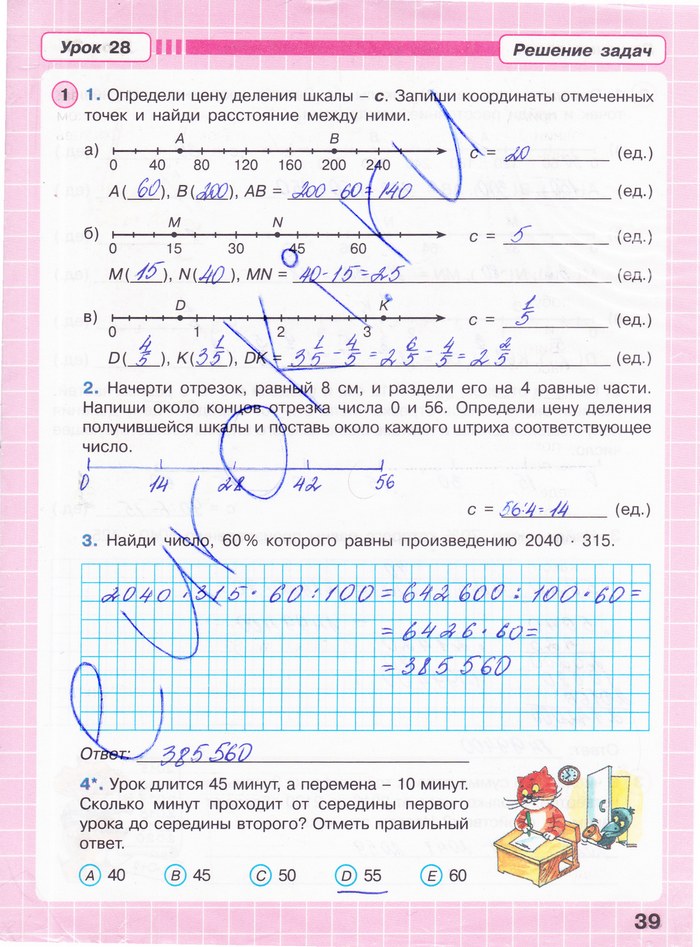 Урок 28
Решение задач
1 1. Определи цену деления шкалы – с. Запиши координаты отмеченных
точек и найди расстояние между ними.
а) A B
0 40 80 120 160 200 240
c = 20 (ед.)
A(60), B(200), AB = 200-60=140 (ед.)
б) M N
0 15 30 45 60
c = 5 (ед.)
M(15), N(40), MN = 40-15=25 (ед.)
в) D K
0 1 2 3
c = 1/5 (ед.)
D(4/5), K(3 1/5), DK = 3 1/5 - 4/5 = 2 6/5 - 4/5 = 2 2/5 (ед.)
2. Начерти отрезок, равный 8 см, и раздели его на 4 равные части.
Напиши около концов отрезка числа 0 и 56. Определи цену деления
получившейся шкалы и поставь около каждого штриха соответствующее
число.
0 14 28 42 56
c = 56:4=14 (ед.)
3. Найди число, 60% которого равны произведению 2040 · 315.
2040 · 315 · 60 : 100 = 642 600 : 100 · 60 =
= 6426 · 60 =
= 385 560
Ответ: 385560
4*. Урок длится 45 минут, а перемена – 10 минут.
Сколько минут проходит от середины первого
урока до середины второго? Отметь правильный
ответ.
A 40 B 45 C 50 D 55 E 60
39